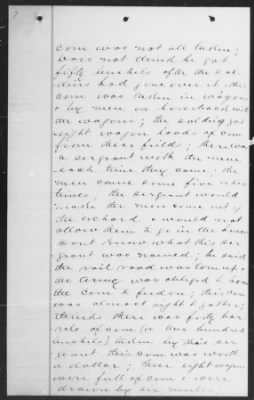 corn was not all taken;
does not think he got
fifty bushels after the sol-
diers had gone over it. the
corn was taken in wagons
& by men on horseback with
the wagons; the soldiers got
eight wagon loads of corn
from these fields; there was
a sergeant with the men
each time they came; the
men came some five or six
times; the sergeant would
make the men come out of
the orchard & would not
allow them to go in the house
dont know what this ser-
geant was named; he said
the rail road was torn up &
the army was obliged to have
the corn to feed on; this corn
was almost right to gather;
thinks there was forty bar-
rels of corn (or two hundred
bushels) taken by this ser-
geant this corn was worth
a dollar; these eight wagons
were full of corn & were
drawn by six mules